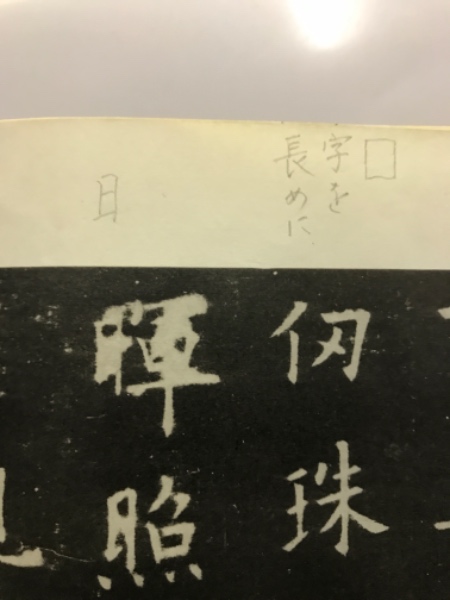 字を
長めに
日
仞珠
暉照